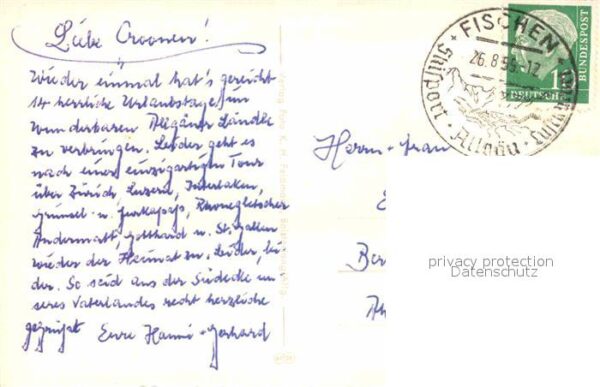 Liebe Croonen!
Wieder einmal hat's gereicht
14 herrliche Urlaubstage im
wunderbaren Allgäuer Ländle
zu verbringen. Leider geht es
nach einer einzigartigen Tour
über Zürich, Luzern, Interlaken,
Grimsel- u. Furkapaß, Rhonegletscher
Andermatt, Gotthard u. St. Gallen
wieder der Heimat zu. Leider, lei-
der. So seid aus der Südecke un-
seres Vaterlandes recht herzliche
gegrüßt Eure Hanni + Gerhard
Herrn + Frau
Ber
FISCHEN
26.8.5
Allgäu
DEUTSCHE
BUNDESPOST
privacy protection
Datenschutz